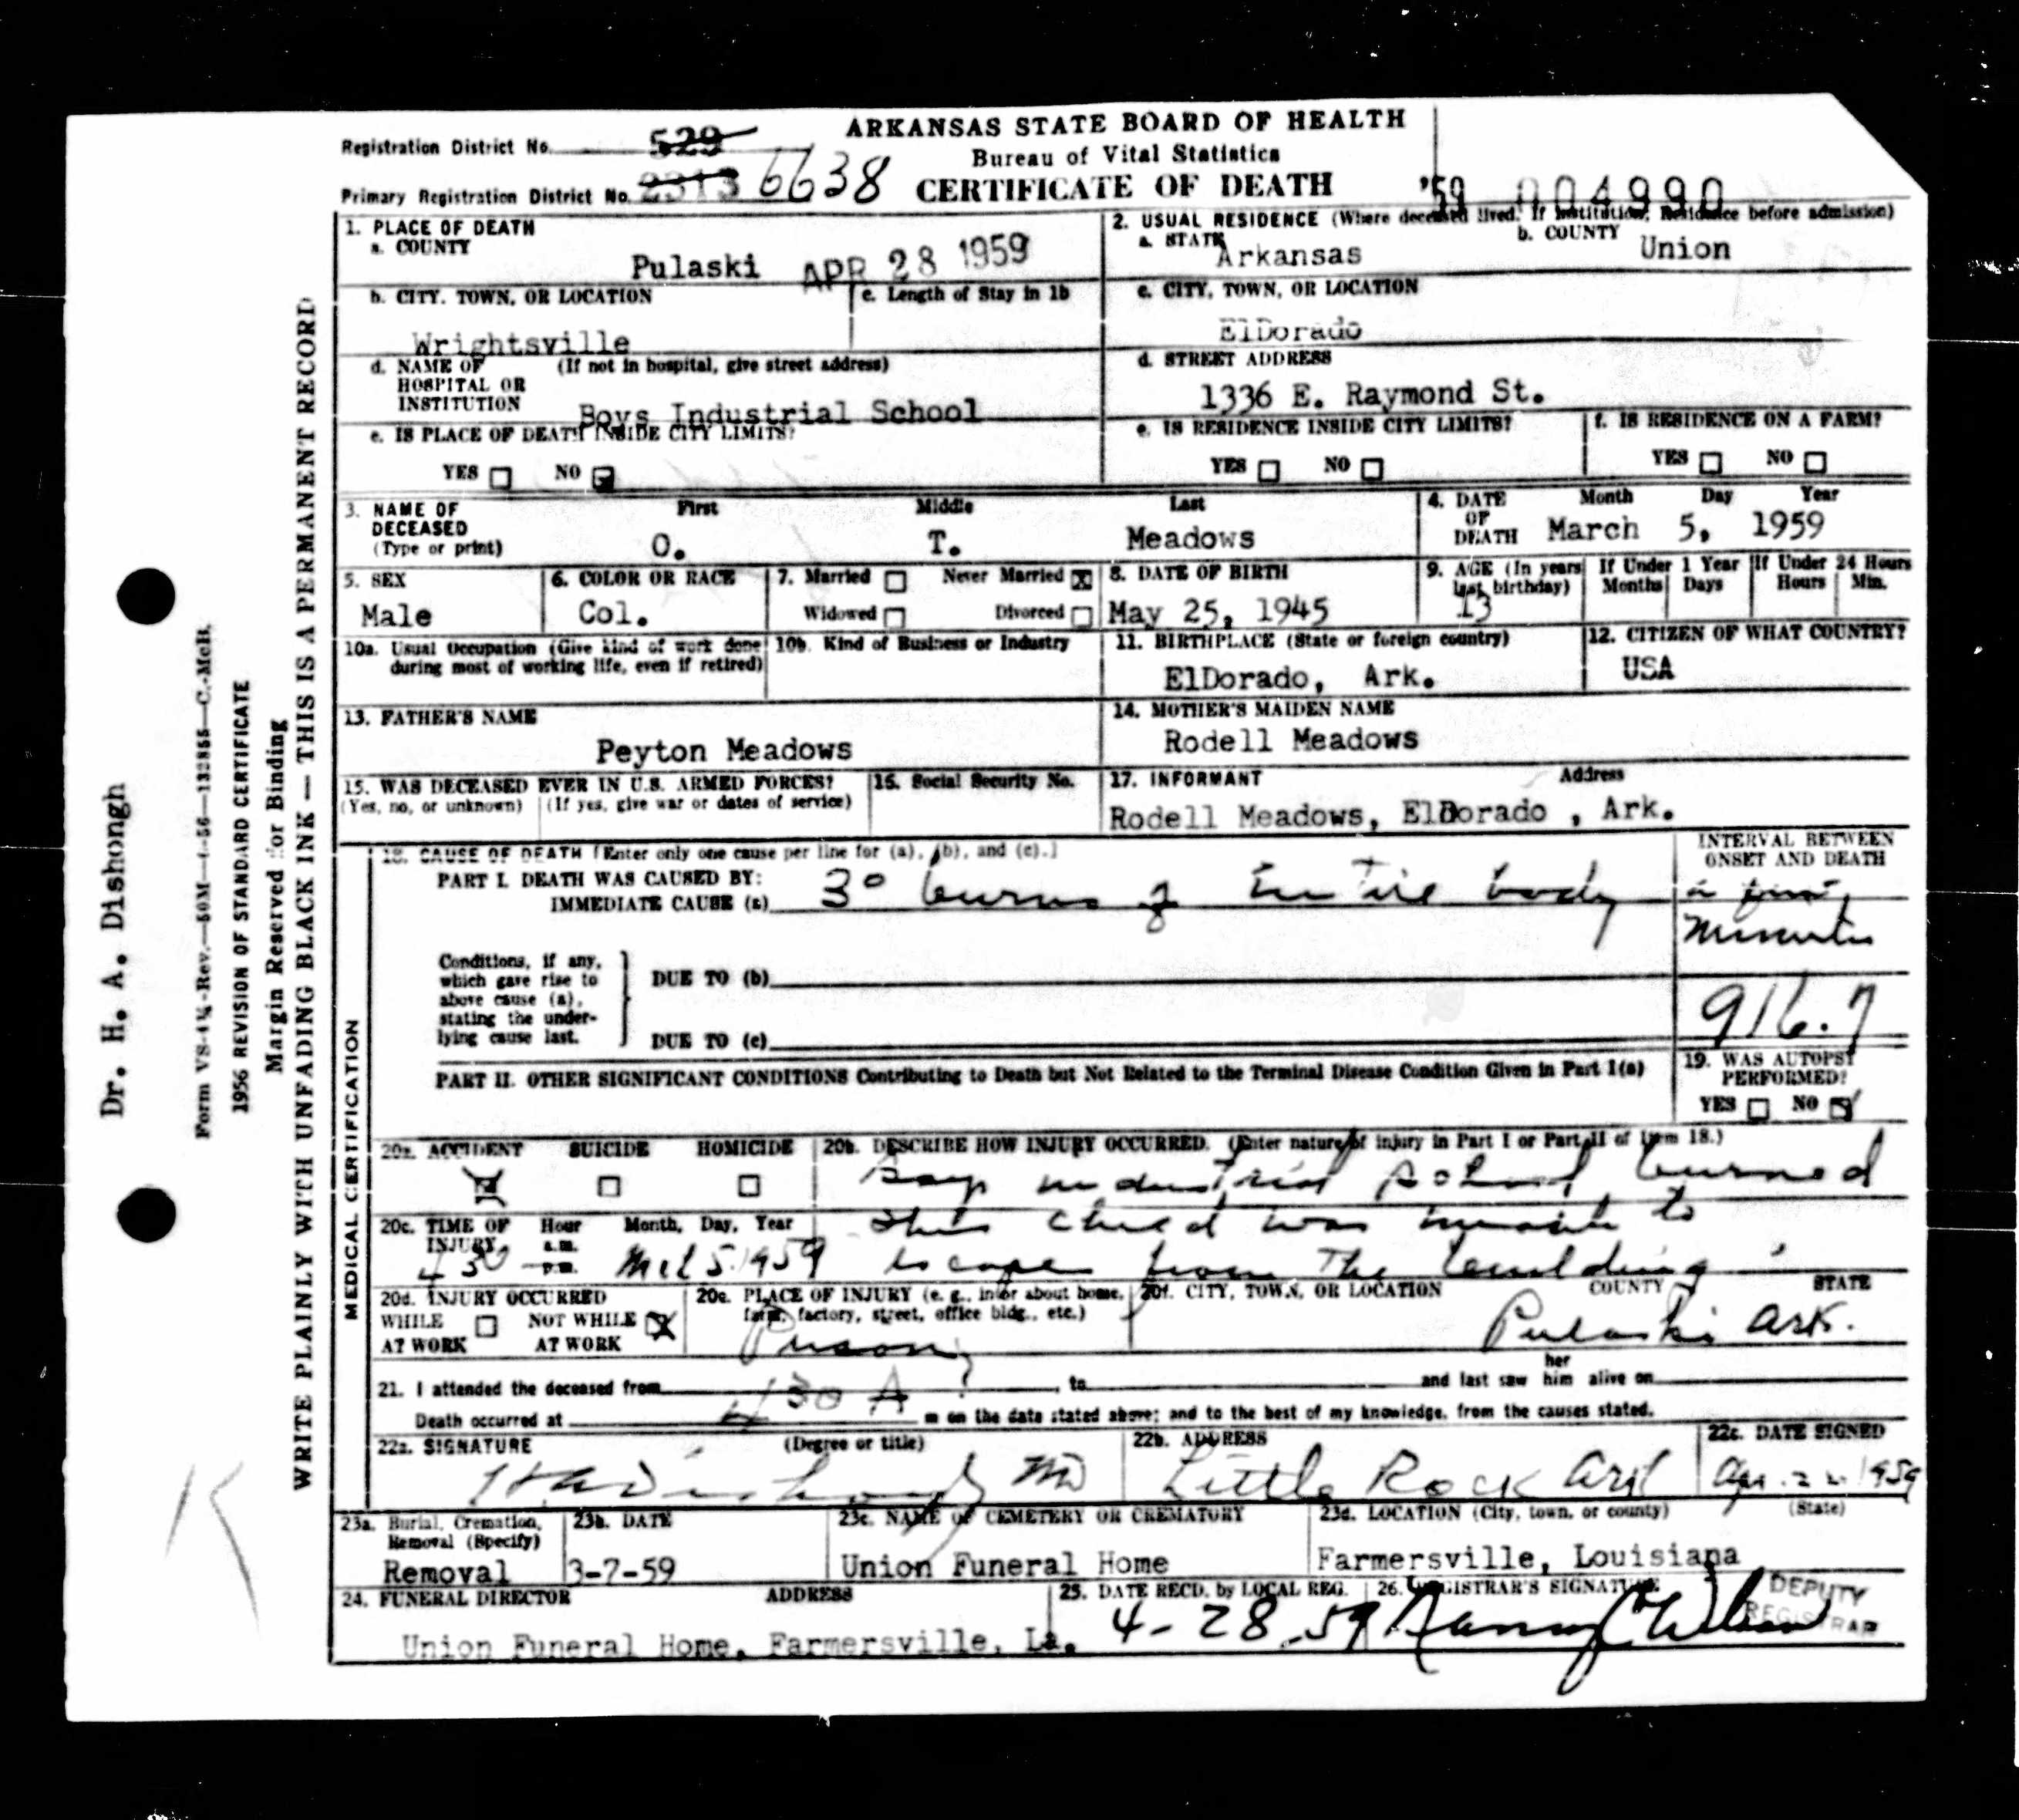 ARKANSAS STATE BOARD OF HEALTH
Bureau of Vital Statistics
CERTIFICATE OF DEATH
Registration District No. 529
Primary Registration District No. 2313 6638
'59 004990
1. PLACE OF DEATH
a. COUNTY
Pulaski APR 28 1959
2. USUAL RESIDENCE (Where deceased lived. If institution, Residence before admission)
a. STATE Arkansas b. COUNTY Union
b. CITY, TOWN, OR LOCATION
Wrightsville
c. Length of Stay in 1b
c. CITY, TOWN, OR LOCATION
ElDorado
d. NAME OF HOSPITAL OR INSTITUTION (If not in hospital, give street address)
Boys Industrial School
d. STREET ADDRESS
1336 E. Raymond St.
e. IS PLACE OF DEATH INSIDE CITY LIMITS?
YES NO
e. IS RESIDENCE INSIDE CITY LIMITS?
YES NO
f. IS RESIDENCE ON A FARM?
YES NO
3. NAME OF DECEASED (Type or print)
First Middle Last
O. T. Meadows
4. DATE OF DEATH Month Day Year
March 5, 1959
5. SEX
Male
6. COLOR OR RACE
Col.
7. Married Never Married
Widowed Divorced
8. DATE OF BIRTH
May 25, 1945
9. AGE (In years last birthday)
13
If Under 1 Year Months Days
If Under 24 Hours Hours Min.
10a. Usual Occupation (Give kind of work done during most of working life, even if retired)
10b. Kind of Business or Industry
11. BIRTHPLACE (State or foreign country)
ElDorado, Ark.
12. CITIZEN OF WHAT COUNTRY?
USA
13. FATHER'S NAME
Peyton Meadows
14. MOTHER'S MAIDEN NAME
Rodell Meadows
15. WAS DECEASED EVER IN U.S. ARMED FORCES?
(Yes, no, or unknown) (If yes, give war or dates of service)
16. Social Security No.
17. INFORMANT Address
Rodell Meadows, ElDorado , Ark.
18. CAUSE OF DEATH [Enter only one cause per line for (a), (b), and (c).]
INTERVAL BETWEEN ONSET AND DEATH
PART I. DEATH WAS CAUSED BY:
IMMEDIATE CAUSE (a) 3° burns of Entire body
a few minutes
Conditions, if any, which gave rise to above cause (a), stating the underlying cause last.
DUE TO (b)
DUE TO (c)
916.7
PART II. OTHER SIGNIFICANT CONDITIONS Contributing to Death but Not Related to the Terminal Disease Condition Given in Part I(a)
19. WAS AUTOPSY PERFORMED?
YES NO
20a. ACCIDENT SUICIDE HOMICIDE
20b. DESCRIBE HOW INJURY OCCURRED. (Enter nature of injury in Part I or Part II of Item 18.)
Boys industrial school burned
This child was unable to
escape from the building
20c. TIME OF INJURY Hour a.m. p.m. Month, Day, Year
430 Mch 5 1959
20d. INJURY OCCURRED
WHILE AT WORK NOT WHILE AT WORK
20e. PLACE OF INJURY (e. g., in or about home, farm, factory, street, office bldg., etc.)
Prison
20f. CITY, TOWN, OR LOCATION COUNTY STATE
Pulaski Ark.
21. I attended the deceased from , to and last saw her him alive on
Death occurred at 430 A m on the date stated above; and to the best of my knowledge, from the causes stated.
22a. SIGNATURE (Degree or title)
HA Dishongh MD
22b. ADDRESS
Little Rock Ark
22c. DATE SIGNED
Apr. 22 1959
23a. Burial, Cremation, Removal (Specify)
Removal
23b. DATE
3-7-59
23c. NAME OF CEMETERY OR CREMATORY
Union Funeral Home
23d. LOCATION (City, town, or county) (State)
Farmersville, Louisiana
24. FUNERAL DIRECTOR ADDRESS
Union Funeral Home, Farmersville, La.
25. DATE RECD. by LOCAL REG.
4-28-59
26. REGISTRAR'S SIGNATURE
Wilson
DEPUTY REGISTRAR
MEDICAL CERTIFICATION
WRITE PLAINLY WITH UNFADING BLACK INK — THIS IS A PERMANENT RECORD
Margin Reserved for Binding
1956 REVISION OF STANDARD CERTIFICATE
Dr. H. A. Dishongh